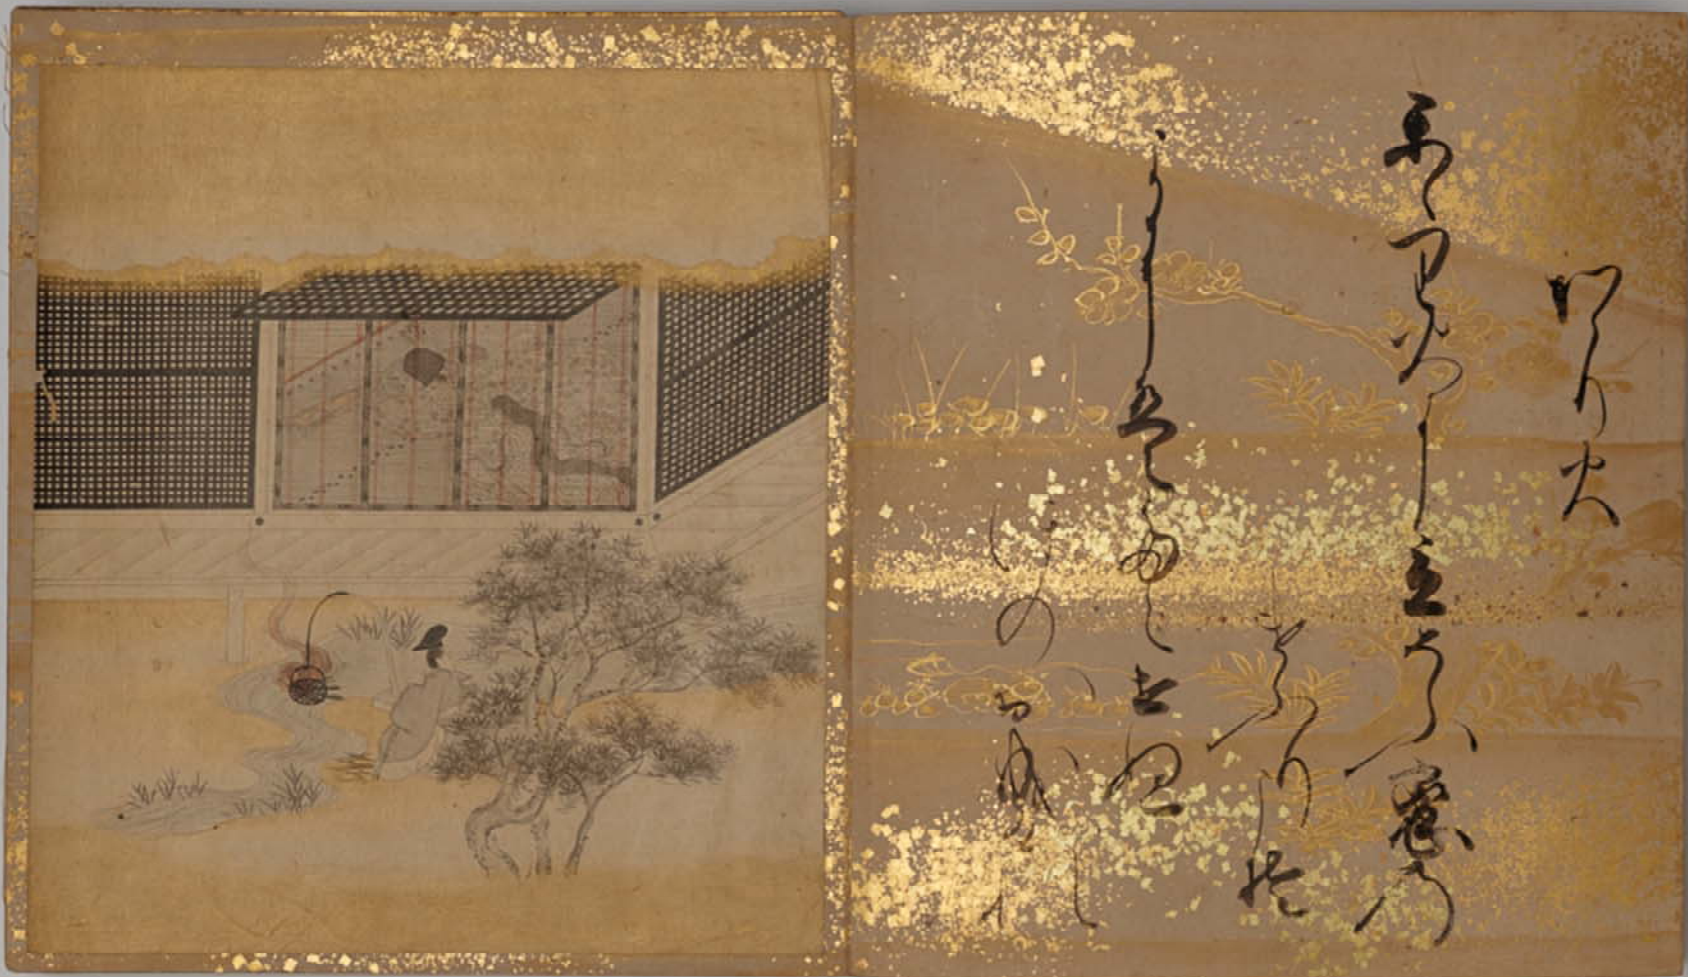 かゝり火
かゝり火に立そふ恋の
けふりこそ
よにはたえせぬ
ほのほなりけれ